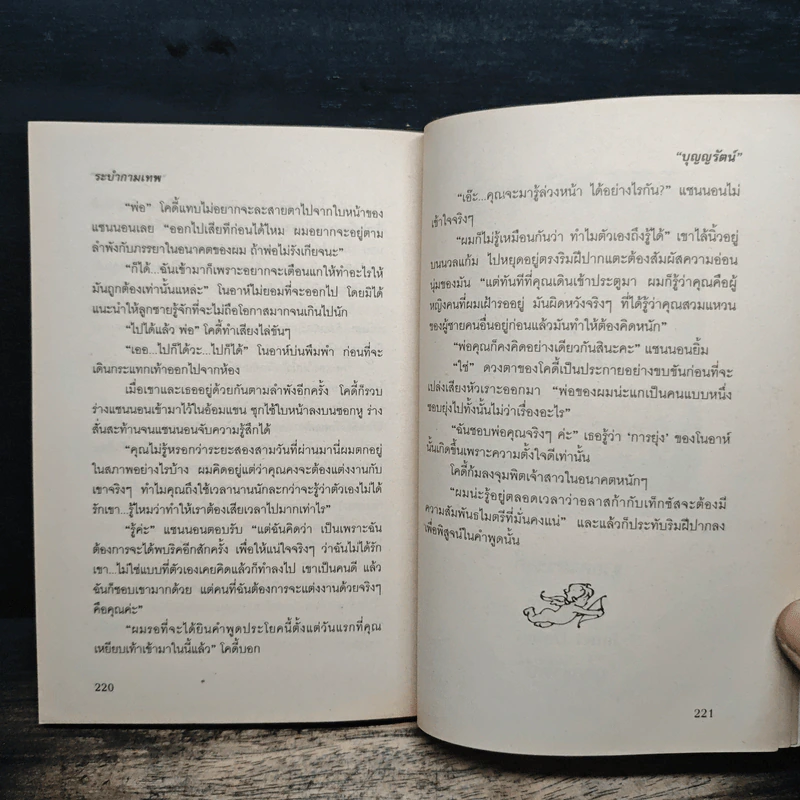 ระบำกามเทพ
"พ่อ" โคดี้แทบไม่อยากจะละสายตาไปจากใบหน้าของ
แชนนอนเลย "ออกไปเสียทีก่อนได้ไหม ผมอยากจะอยู่ตาม
ลำพังกับภรรยาในอนาคตของผม ถ้าพ่อไม่รังเกียจนะ"
"ก็ได้...ฉันเข้ามาก็เพราะอยากจะเตือนแกให้ทำอะไรให้
มันถูกต้องเท่านั้นแหละ" โนอาห์ไม่ยอมที่จะออกไป โดยมิได้
แนะนำให้ลูกชายรู้จักที่จะไม่ถือโอกาสมากจนเกินไปนัก
"ไปได้แล้ว พ่อ" โคดี้ทำเสียงไล่ขันๆ
"เออ...ไปก็ได้วะ...ไปก็ได้" โนอาห์บ่นพึมพำ ก่อนที่จะ
เดินกระแทกเท้าออกไปจากห้อง
เมื่อเขาและเธออยู่ด้วยกันตามลำพังอีกครั้ง โคดี้ก็รวบ
ร่างแชนนอนเข้ามาไว้ในอ้อมแขน ซุกไซ้ใบหน้าลงบนซอกหู ร่าง
สั่นสะท้านจนแชนนอนจับความรู้สึกได้
"คุณไม่รู้หรอกว่าระยะสองสามวันที่ผ่านมานี่ผมตกอยู่
ในสภาพอย่างไรบ้าง ผมคิดอยู่แต่ว่าคุณคงจะต้องแต่งงานกับ
เขาจริงๆ ทำไมคุณถึงใช้เวลานานนักล่ะกว่าจะรู้ว่าตัวเองไม่ได้
รักเขา...รู้ไหมว่าทำให้เราต้องเสียเวลาไปมากเท่าไร"
"รู้ค่ะ" แชนนอนตอบรับ "แต่ฉันคิดว่า เป็นเพราะฉัน
ต้องการจะได้พบริคอีกสักครั้ง เพื่อให้แน่ใจจริงๆ ว่าฉันไม่ได้รัก
เขา...ไม่ใช่แบบที่ตัวเองเคยคิดแล้วก็ทำลงไป เขาเป็นคนดี แล้ว
ฉันก็ชอบเขามากด้วย แต่คนที่ฉันต้องการจะแต่งงานด้วยจริงๆ
คือคุณค่ะ"
"ผมรอที่จะได้ยินคำพูดประโยคนี้ตั้งแต่วันแรกที่คุณ
เหยียบเท้าเข้ามาในนี้แล้ว" โคดี้บอก
220
"บุญญรัตน์"
"เอ๊ะ...คุณจะมารู้ล่วงหน้า ได้อย่างไรกัน?" แชนนอนไม่
เข้าใจจริงๆ
"ผมก็ไม่รู้เหมือนกันว่า ทำไมตัวเองถึงรู้ได้" เขาไล้นิ้วอยู่
บนนวลแก้ม ไปหยุดอยู่ตรงริมฝีปากแตะต้องสัมผัสความอ่อน
นุ่มของมัน "แต่ทันทีที่คุณเดินเข้าประตูมา ผมก็รู้ว่าคุณคือผู้
หญิงคนที่ผมเฝ้ารออยู่ มันผิดหวังจริงๆ ที่ได้รู้ว่าคุณสวมแหวน
ของผู้ชายคนอื่นอยู่ก่อนแล้วมันทำให้ต้องคิดหนัก"
"พ่อคุณก็คงคิดอย่างเดียวกันสินะคะ" แชนนอนยิ้ม
"ใช่" ดวงตาของโคดี้เป็นประกายอย่างขบขันก่อนที่จะ
เปล่งเสียงหัวเราะออกมา "พ่อของผมน่ะแกเป็นคนแบบหนึ่ง
ชอบยุ่งไปทั้งนั้นไม่ว่าเรื่องอะไร"
"ฉันชอบพ่อคุณจริงๆ ค่ะ" เธอรู้ว่า 'การยุ่ง' ของโนอาห์
นั้นเกิดขึ้นเพราะความตั้งใจดีเท่านั้น
โคดี้ก้มลงจุมพิตเจ้าสาวในอนาคตหนักๆ
"ผมน่ะรู้อยู่ตลอดเวลาว่าอลาสก้ากับเท็กซัสจะต้องมี
ความสัมพันธไมตรีที่มั่นคงแน่" และแล้วก็ประทับริมฝีปากลง
เพื่อพิสูจน์ในคำพูดนั้น
221